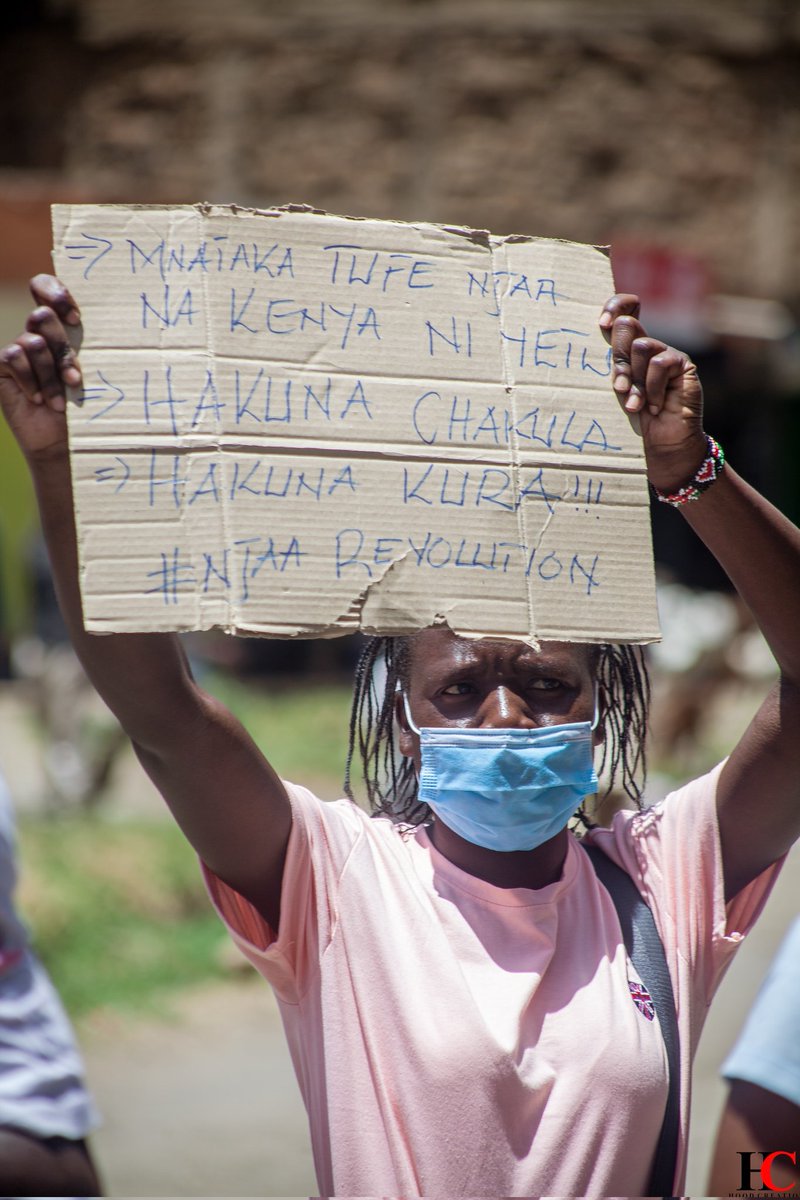 ⇒ MNATAKA TUFE NJAA
NA KENYA NI YETU
⇒ HAKUNA CHAKULA
⇒ HAKUNA KURA!!!
#NJAA REVOLUTION
HC